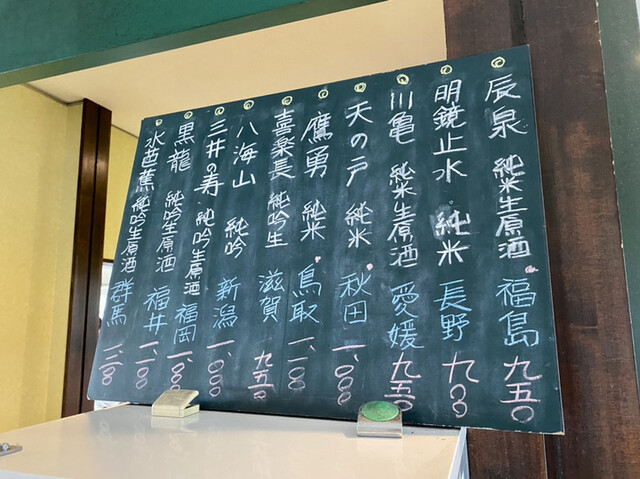 辰泉 純米生原酒 福島 九五〇
明鏡止水 純米 長野 九〇〇
川亀 純米生原酒 愛媛 九五〇
天の戸 純米 秋田 一、〇〇〇
鷹勇 純米 鳥取 一、一〇〇
喜楽長 純吟生 滋賀 九五〇
八海山 純吟 新潟 一、〇〇〇
三井の寿 純吟生原酒 福岡 一、〇〇〇
黒龍 純吟生原酒 福井 一、一〇〇
水芭蕉 純吟生原酒 群馬 一、一〇〇